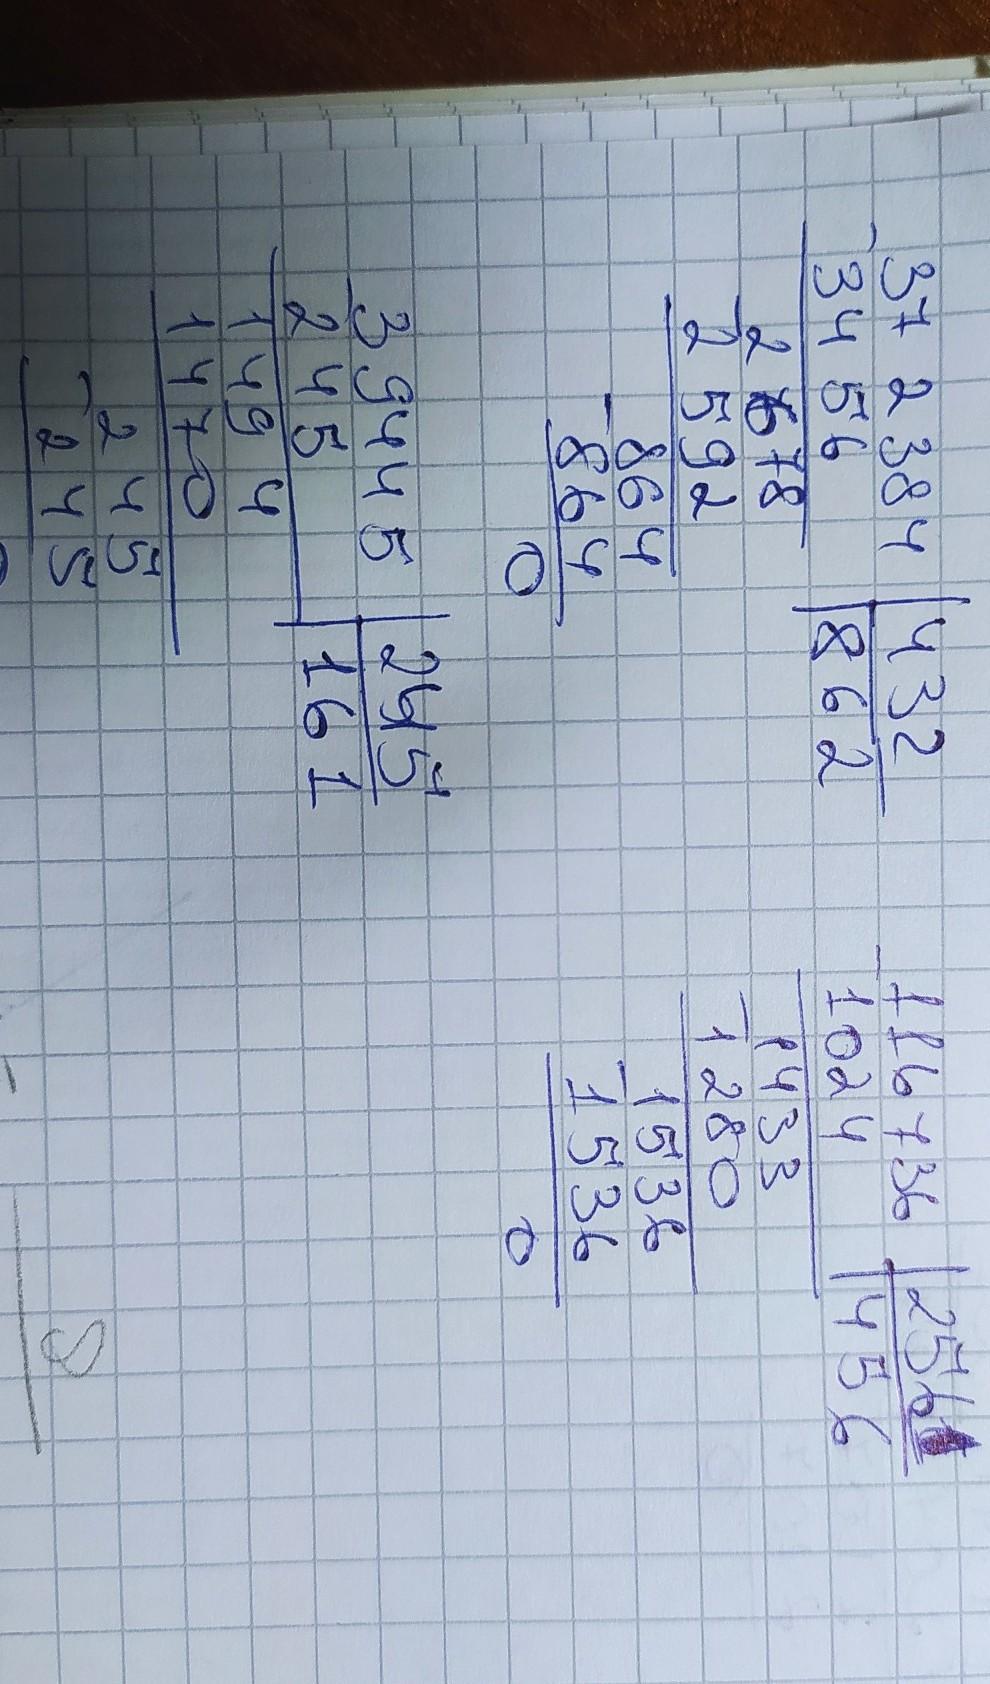 -372384 | 432
3456 | 862
-2678
2592
-864
864
0
-116736 | 256
1024 | 456
-1433
1280
-1536
1536
0
-39445 | 245
245 | 161
1494
1470
-245
245
0
8